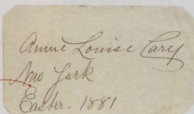 Annie Louise Cary
New York
Easter - 1881